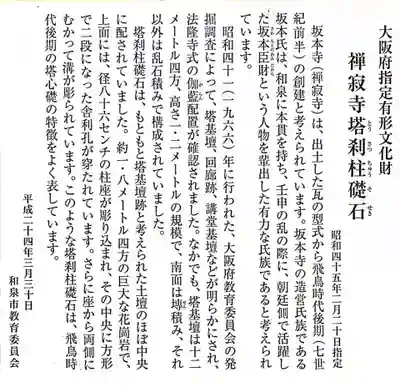 大阪府指定有形文化財
禅寂寺塔刹柱礎石
とうさつちゅうそせき
昭和四十五年二月二十日指定
坂本寺（禅寂寺）は、出土した瓦の型式から飛鳥時代後期（七世
紀前半）の創建と考えられています。坂本寺の造営氏族である
坂本氏は、和泉に本貫を持ち、壬申の乱の際に、朝廷側で活躍し
た坂本臣財という人物を輩出した有力な氏族であると考えられ
ています。
昭和四十一（一九六六）年に行われた、大阪府教育委員会の発
掘調査によって、塔基壇、回廊跡、講堂基壇などが明らかにされ、
法隆寺式の伽藍配置が確認されました。なかでも、塔基壇は十二
メートル四方、高さ一・二メートルの規模で、南面は地積み、それ
以外は乱石積みで構成されていました。
塔刹柱礎石は、もともと塔基壇跡と考えられた土壇のほぼ中央
に配されていました。約一・八メートル四方の巨大な花崗岩で、
上面には、径八十六センチの柱座が彫り込まれ、その中央に方形
で二段になった舎利孔が穿たれています。さらに座から両側に
むかって溝が彫られています。このような塔刹柱礎石は、飛鳥時
代後期の塔心礎の特徴をよく表しています。
平成二十四年三月三十日
和泉市教育委員会